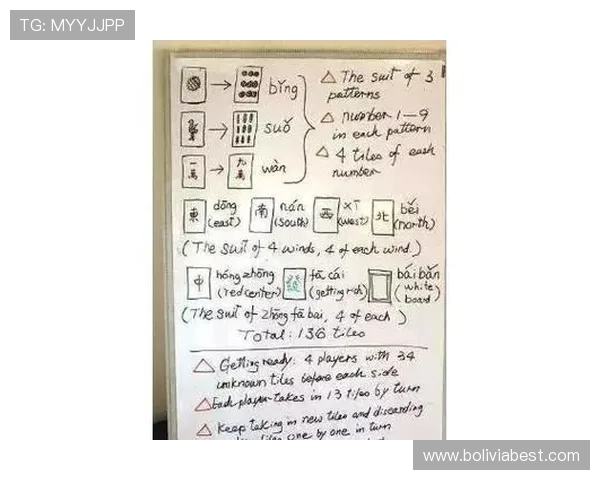 TG: MYYJJPP
→ bǐng
→ suǒ
一萬 → 九萬 wàn
△ The suit of 3
patterns
△ number 1—9
in each pattern
△ 4 tiles of each
number
東 dōng (east) 南 nán (south) 西 xī (west) 北 běi (north)
(The suit of 4 winds, 4 of each wind.)
中 hóng zhōng (red center) 發 fā cái (getting rich) bái bǎn (white board)
(The suit of zhōng fā bái, 4 of each)
Total: 136 tiles
△ Getting ready: 4 players with 34
unknown tiles before each side
△ Each player takes in 13 tiles by turn
△ Keep taking in new tiles and discarding
tiles one by one in turn
www.boliviabest.com